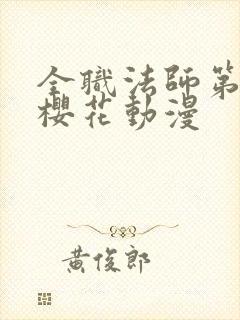 全職法師第
櫻花動漫
黃俊郎